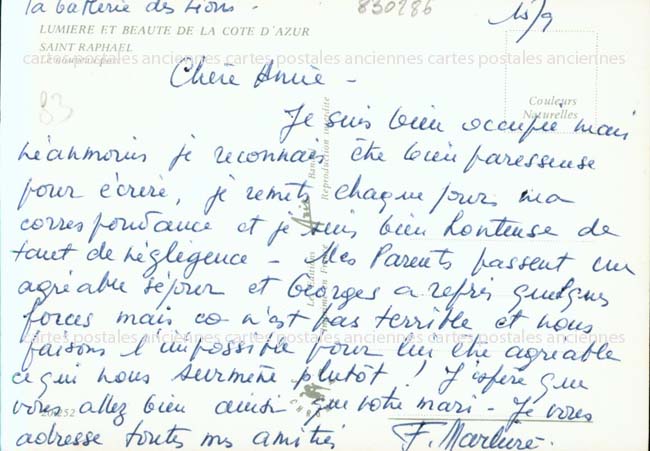 la batterie des Lions.
830286
15/9
LUMIERE ET BEAUTE DE LA COTE D'AZUR
SAINT RAPHAEL
cartes postales anciennes cartes postales anciennes cartes postales anciennes
83
Couleurs
Naturelles
Chère Annie -
Je suis bien occupée mais
néanmoins je reconnais être bien paresseuse
pour écrire, je remets chaque jours ma
correspondance et je suis bien honteuse de
tant de négligence - Mes Parents passent un
agréable séjour et Georges a repris quelques
forces mais ce n'est pas terrible et nous
cartes postales anciennes cartes postales anciennes cartes postales anciennes
faisons l'impossible pour lui être agréable
ce qui nous surmène plutôt ! J'espère que
vous allez bien ainsi que votre mari - Je vous
adresse toutes mes amitiés
Reproduction interdite